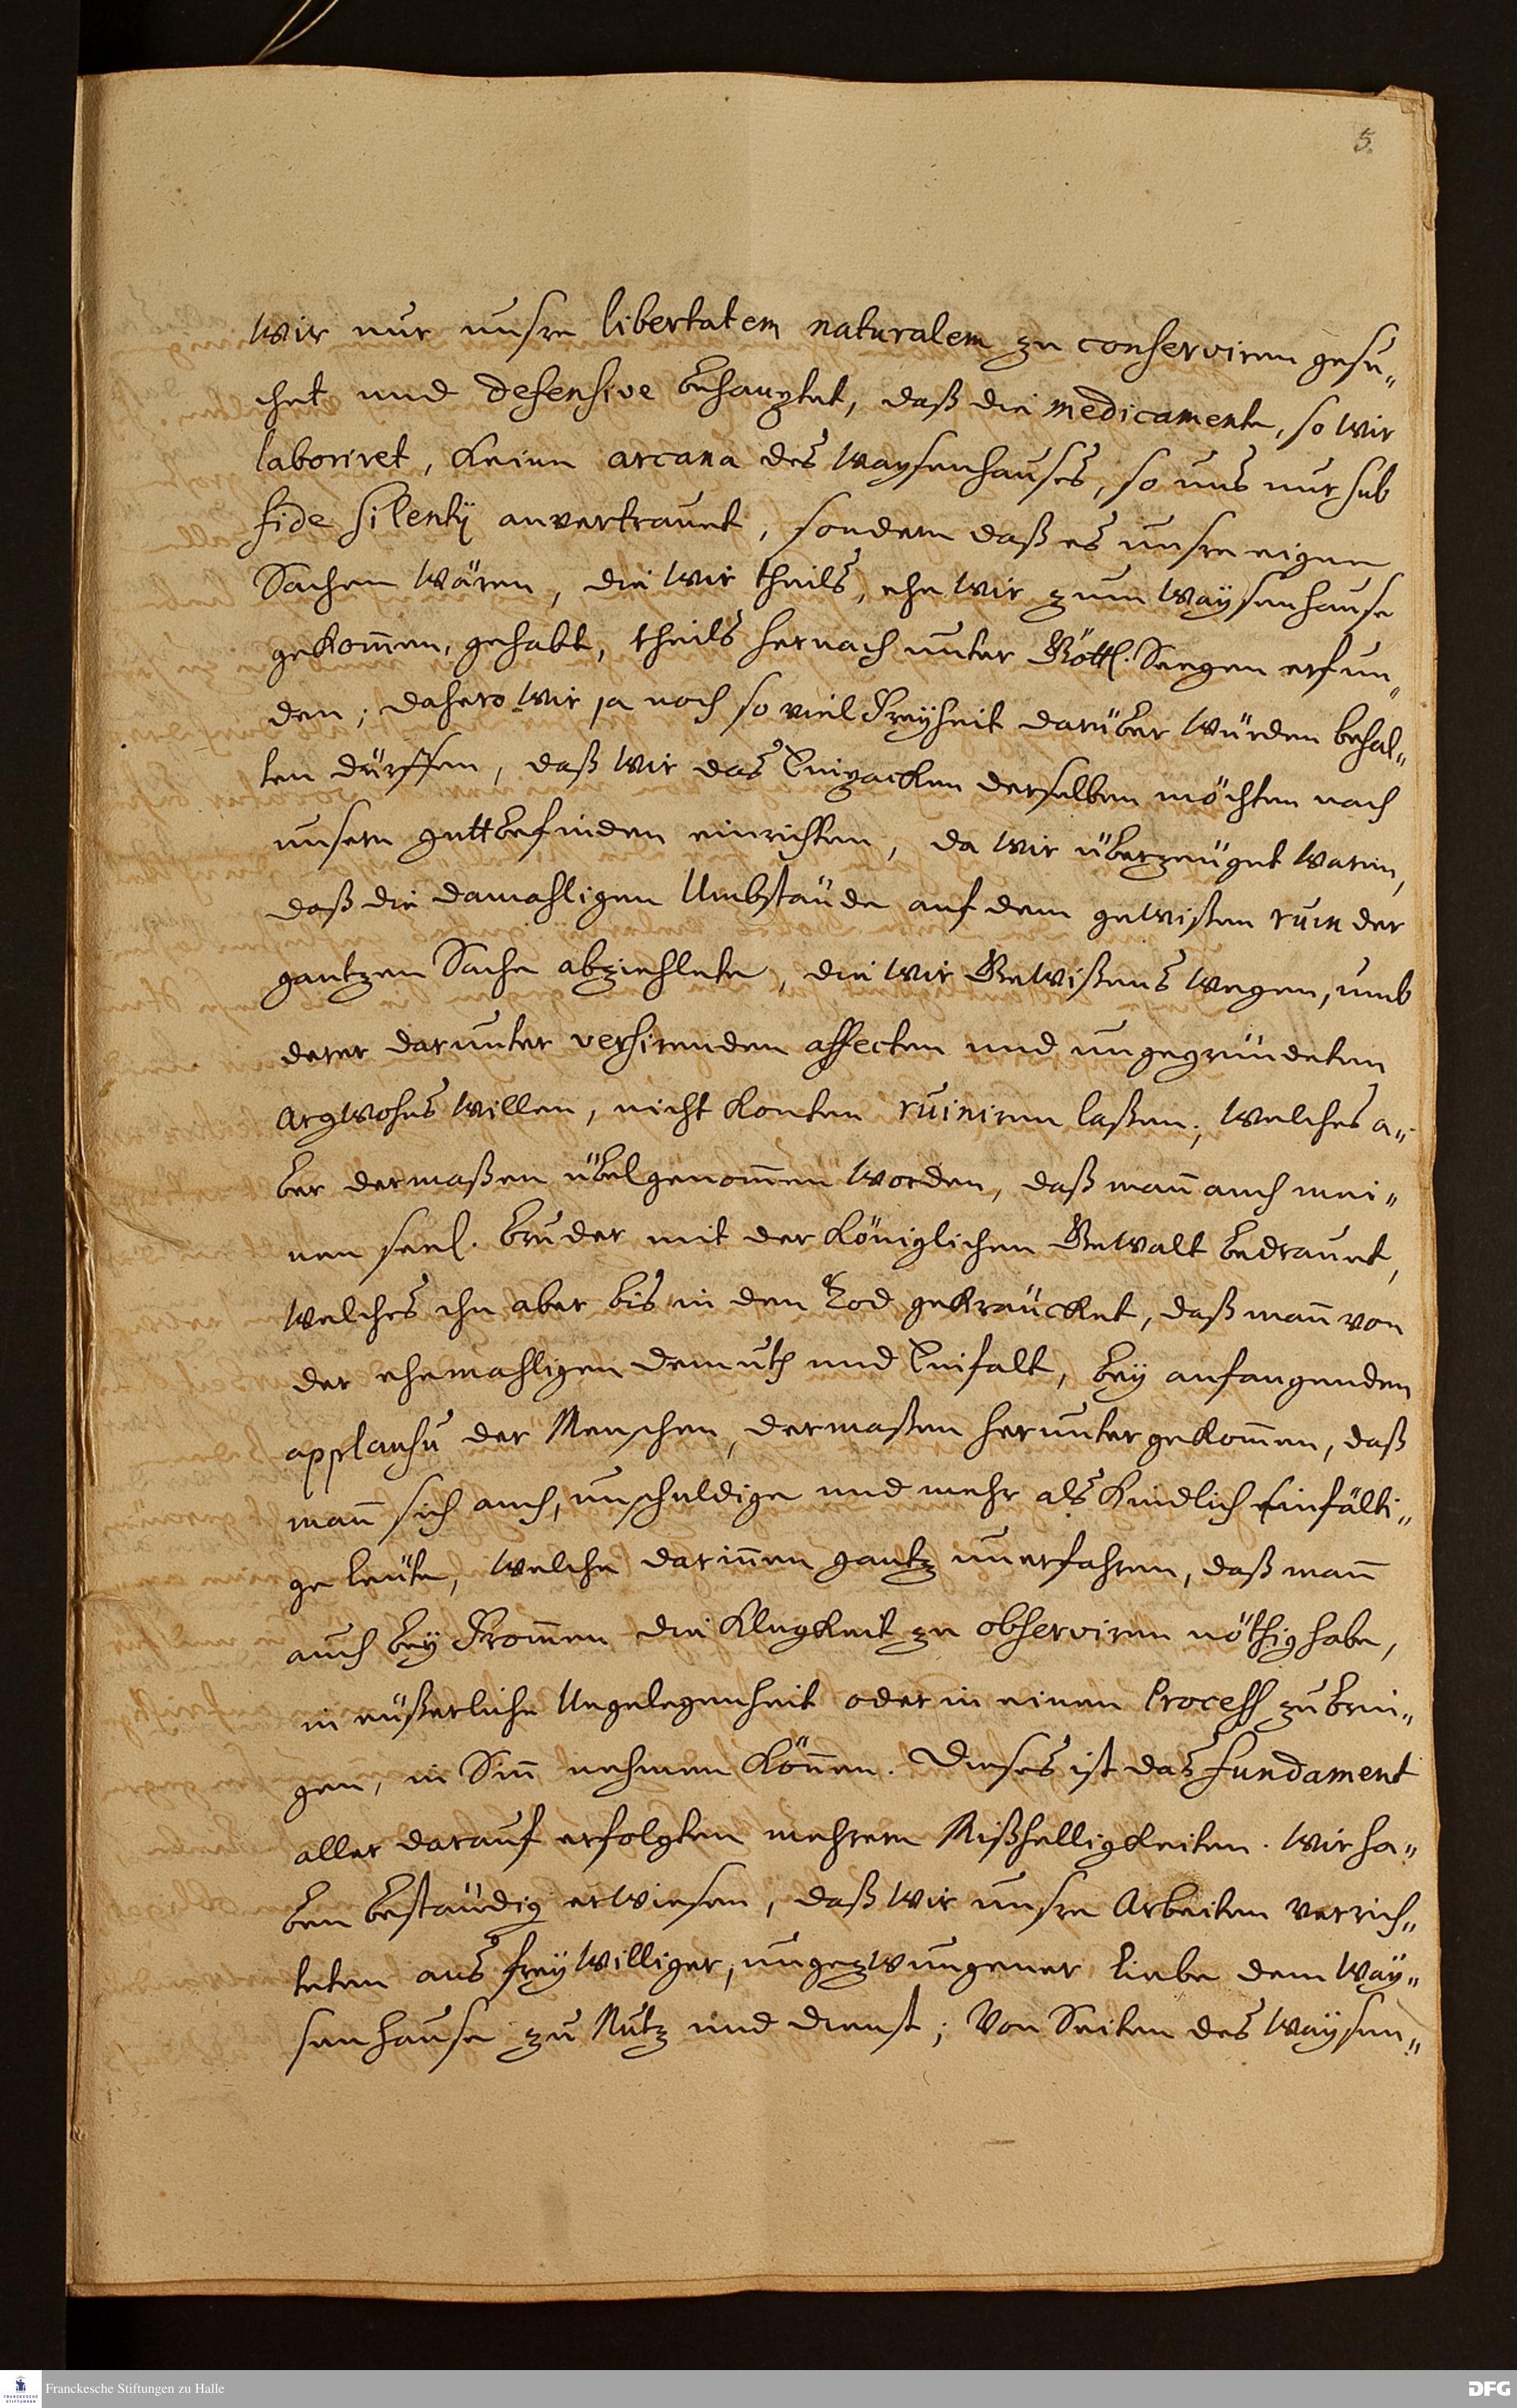 5.
wir nur unsre libertatem naturalem zu conserviren gesu„
chet und defensive behauptet, daß die medicamente, so wir
laboriret, keine arcana des Waysenhauses, so uns nur sub
fide silentij anvertrauet, sondern daß es unsre eigene
Sachen wären, die wir theils, ehe wir zum Waysenhause
gekom̄en, gehabt, theils hernach unter Göttl. Seegen erfun„
den; dahero wir ja noch so viel Freyheit darüber würden behal„
ten dürffen, daß wir das Einpacken derselben möchten nach
unserm guttbefinden einrichten, da wir überzeuget waren,
daß die damahligen Umbstände auf dem gewißen ruin der
gantzen Sache abziehlete, die wir Gewißens wegen, umb
derer darunter versirenden affecten und ungegründeten
Argwohns willen, nicht konten ruiniren laßen; welches a„
ber dermaßen übel genom̄en worden, daß man̄ auch mei„
nen seel. Bruder mit der Königlichen Gewalt bedrauet,
welches ihn aber bis in den Tod gekräncket, daß man̄ von
der ehemahligen demuth und Einfalt, bey anfangenden
applausu der Menschen, dermaßen herunter gekom̄en, daß
man̄ sich auch, unschuldige und mehr als kindlich einfälti„
ge leute, welche darin̄en gantz unerfahren, daß man̄
auch bey From̄en die Klugkeit zu observiren nöthig habe,
in eüßerliche Ungelegenheit oder in einen Process zu brin„
gen, in Sin̄ nehmen kön̄en. Dieses ist das Fundament
aller darauf erfolgten mehrern Mißhelligkeiten. Wir ha„
ben beständig erwiesen, daß wir unsre Arbeiten verrich„
teten aus freywilliger, ungezwungener Liebe dem Way„
senhause zu Nutz und dienst; Von Seiten des Waysen„
Franckesche Stiftungen zu Halle
DFG